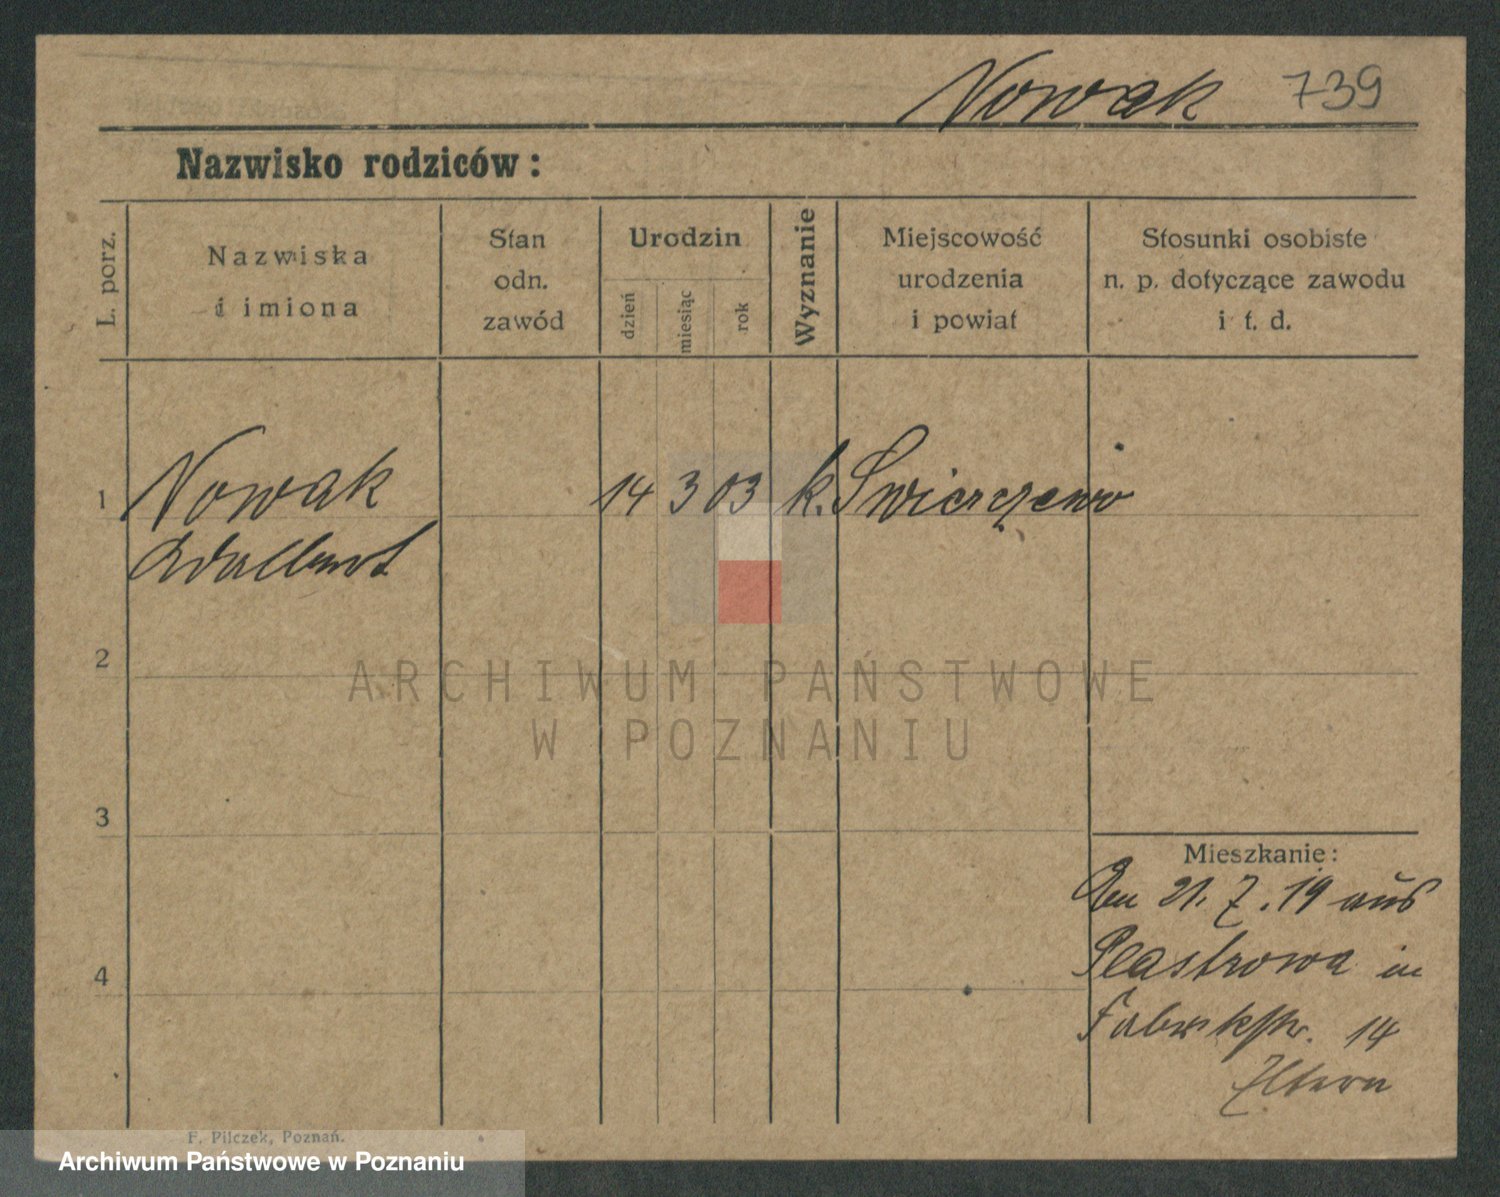 Nowak 739
Nazwisko rodziców:
L. porz.
Nazwiska
i imiona
Stan
odn.
zawód
Urodzin
dzień
miesiąc
rok
Wyznanie
Miejscowość
urodzenia
i powiat
Stosunki osobiste
n. p. dotyczące zawodu
i t. d.
1 Nowak 14 3 03 k. Swierczewo
Adalbert
2
3
4
Mieszkanie:
21. 7. 19 aus
in
Fabrikstr. 14
Eltern
F. Pilczek, Poznań.
ARCHIWUM PAŃSTWOWE
W POZNANIU
Archiwum Państwowe w Poznaniu